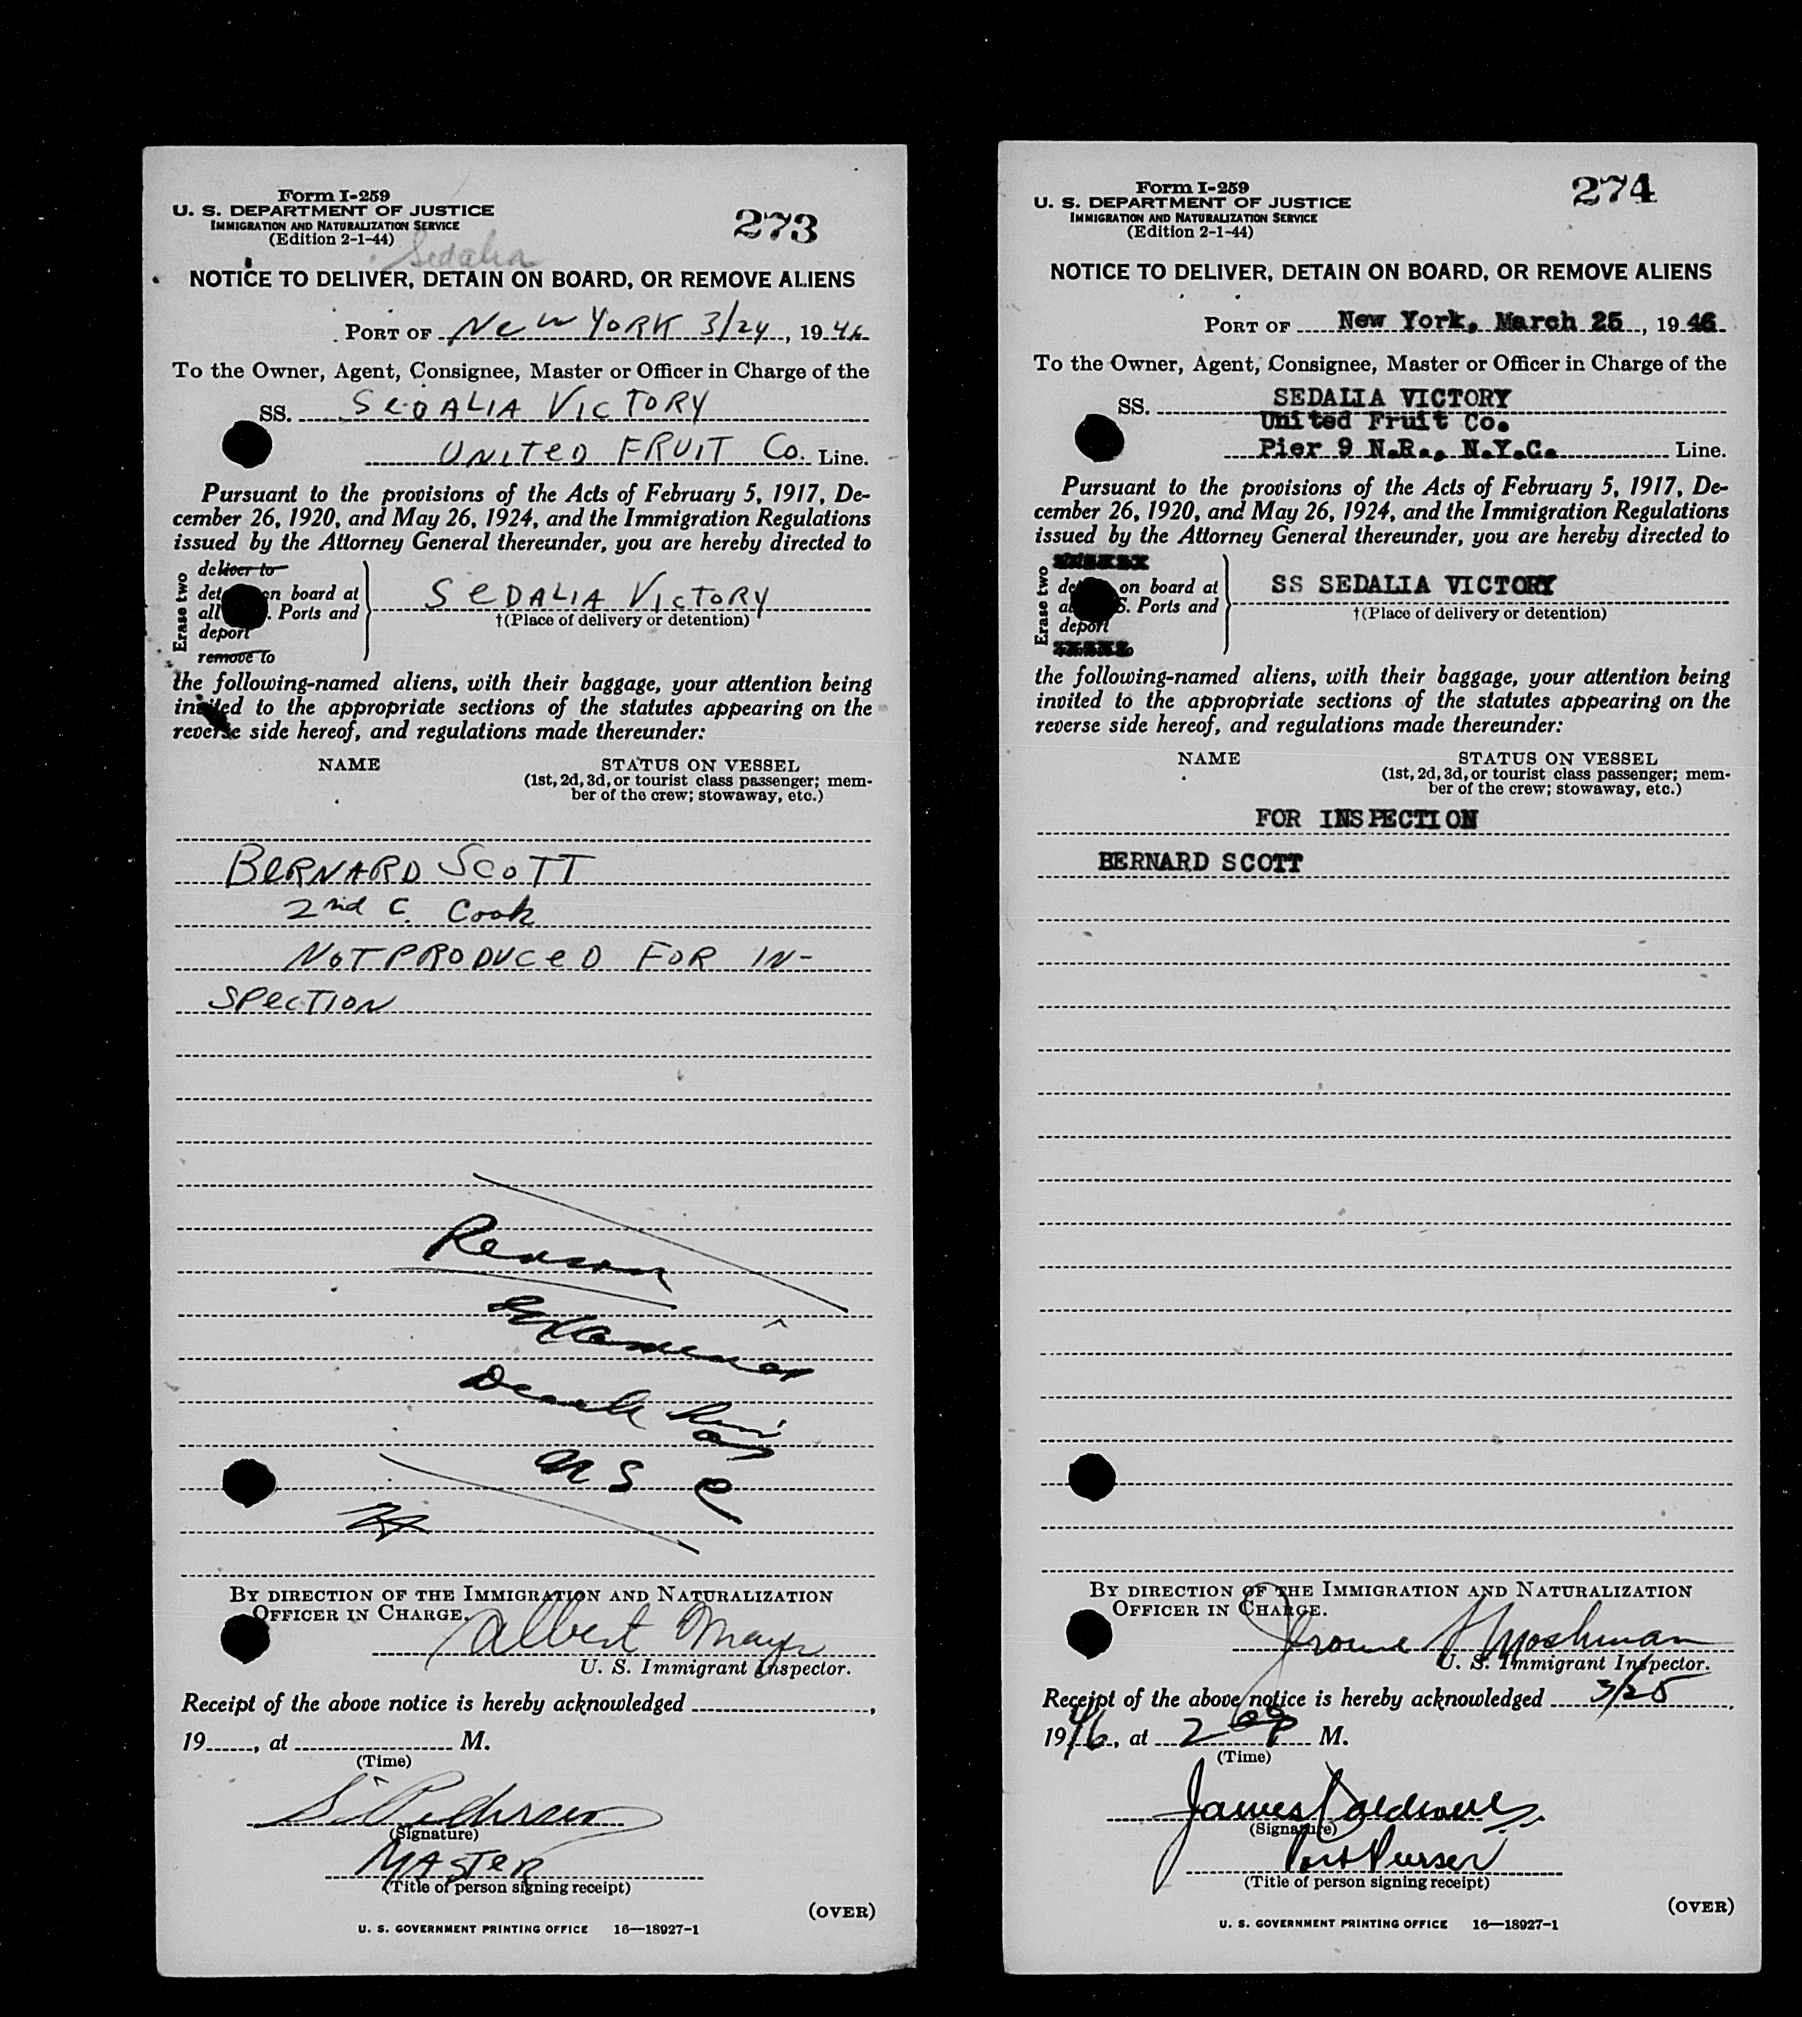 Form I-259
U. S. DEPARTMENT OF JUSTICE
IMMIGRATION AND NATURALIZATION SERVICE
(Edition 2-1-44)
273
Sedalia
NOTICE TO DELIVER, DETAIN ON BOARD, OR REMOVE ALIENS
PORT OF New YORK 3/24, 1946
To the Owner, Agent, Consignee, Master or Officer in Charge of the
SS. SeDALIA VICTORY
UNITeD FRUIT Co. Line.
Pursuant to the provisions of the Acts of February 5, 1917, De-
cember 26, 1920, and May 26, 1924, and the Immigration Regulations
issued by the Attorney General thereunder, you are hereby directed to
Erase two
deliver to
on board at
all . Ports and
deport
remove to
SeDALIA VICTORY
†(Place of delivery or detention)
the following-named aliens, with their baggage, your attention being
invited to the appropriate sections of the statutes appearing on the
reverse side hereof, and regulations made thereunder:
NAME STATUS ON VESSEL
(1st, 2d, 3d, or tourist class passenger; mem-
ber of the crew; stowaway, etc.)
BeRNARD SCOTT
2nd C. Cook
NOT PRODUCeD FOR IN-
SPecTION
Reason
BY DIRECTION OF THE IMMIGRATION AND NATURALIZATION
OFFICER IN CHARGE.
Albert Mayr
U. S. Immigrant Inspector.
Receipt of the above notice is hereby acknowledged ,
19 , at M.
(Time)
(Signature)
MASTeR
(Title of person signing receipt)
(OVER)
U. S. GOVERNMENT PRINTING OFFICE 16—18927-1
Form I-259
U. S. DEPARTMENT OF JUSTICE
IMMIGRATION AND NATURALIZATION SERVICE
(Edition 2-1-44)
274
NOTICE TO DELIVER, DETAIN ON BOARD, OR REMOVE ALIENS
PORT OF New York, March 25, 1946
To the Owner, Agent, Consignee, Master or Officer in Charge of the
SS. SEDALIA VICTORY
United Fruit Co.
Pier 9 N.R., N.Y.C. Line.
Pursuant to the provisions of the Acts of February 5, 1917, De-
cember 26, 1920, and May 26, 1924, and the Immigration Regulations
issued by the Attorney General thereunder, you are hereby directed to
Erase two
on board at
S. Ports and
deport
SS SEDALIA VICTORY
†(Place of delivery or detention)
the following-named aliens, with their baggage, your attention being
invited to the appropriate sections of the statutes appearing on the
reverse side hereof, and regulations made thereunder:
NAME STATUS ON VESSEL
(1st, 2d, 3d, or tourist class passenger; mem-
ber of the crew; stowaway, etc.)
FOR INSPECTION
BERNARD SCOTT
BY DIRECTION OF THE IMMIGRATION AND NATURALIZATION
OFFICER IN CHARGE.
Jerome
U. S. Immigrant Inspector.
Receipt of the above notice is hereby acknowledged 3/25,
1946, at 2 00 P M.
(Time)
James
(Signature)
Port Purser
(Title of person signing receipt)
(OVER)
U. S. GOVERNMENT PRINTING OFFICE 16—18927-1